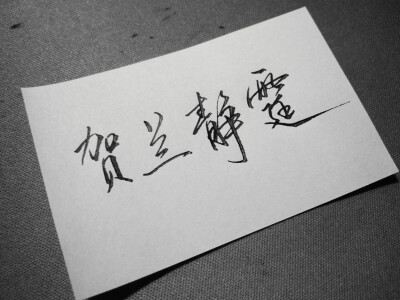 贺兰静霆